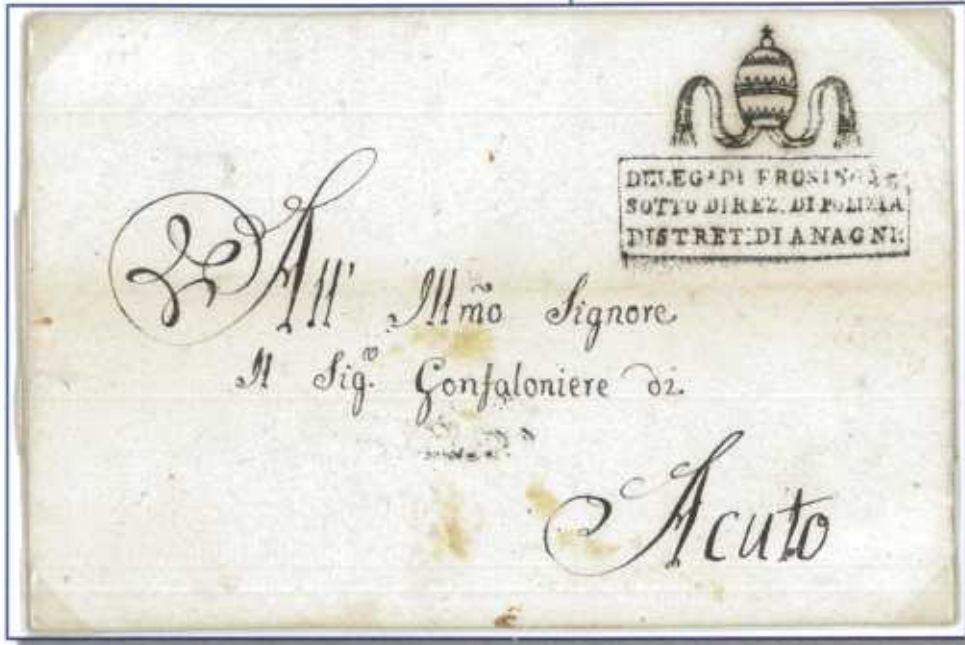 DELEG.ᵃ DI FROSINONE
SOTTO DIREZ. DI POLIZIA
DISTRET. DI ANAGNI.
All' Illmo Signore
Il Sig.ʳ Gonfaloniere di
Acuto